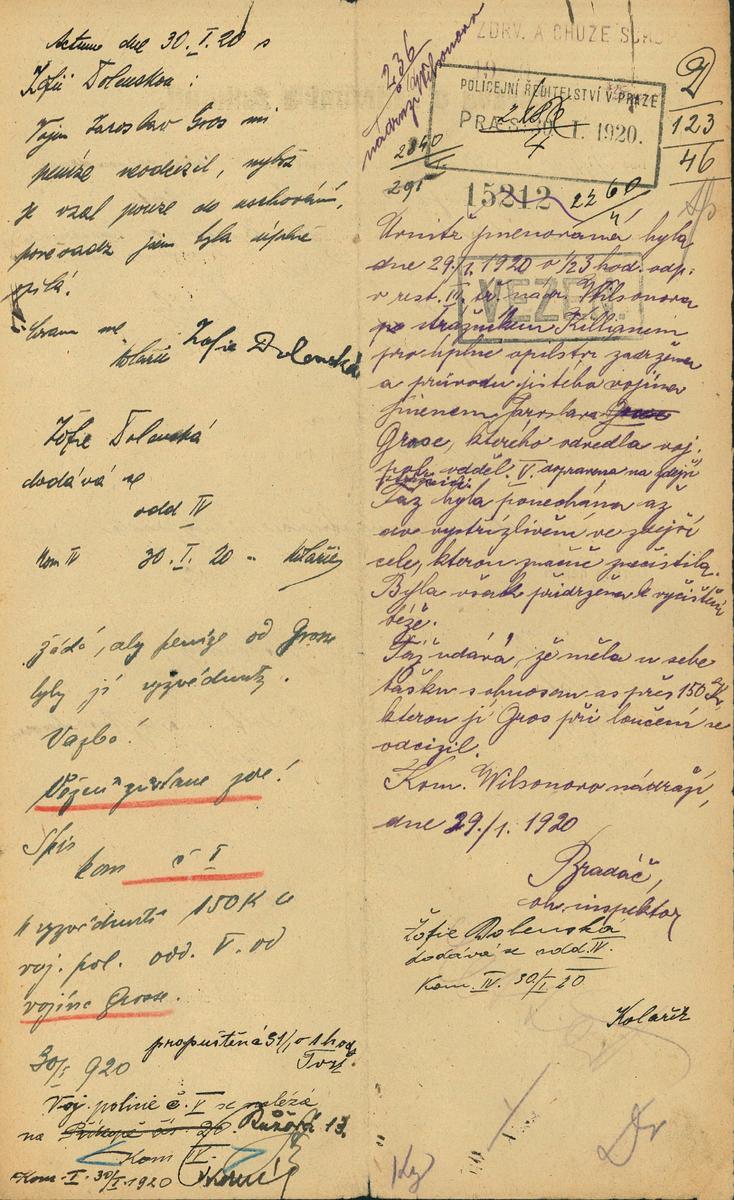 Actum dne 30.I.20 s
Žofií Dolenskou:
Vojín Jaroslav Gros mi
peníze neodcizil, nýbrž
je vzal pouze do uschování,
poněvadž jsem byla úplně
pilá.
Kolařík Žofie Dolenská
Žofie Dolenská
dodává se
odd IV
Kom IV 30.I.20 Kolařík
Žádá, aby peníze od Grosse
byly jí vyzvednuty.
Vazba!
zůstane zde!
Spis
kom č I
k vyzvednutí 150 K u
voj. pol. odd. V. od
vojína Grosse.
30/I 920
propuštěná 31/1 o 1 hod.
Voj. policie č. V se nalézá
na Příkopě čís 20 Růžová 13.
Kom IV.
Kom. I. 30/I. 1920
236
nádraží Wilsonovo
ZDRV. A CHUZE
POLICEJNÍ ŘEDITELSTVÍ V PRAZE
PRAES. 30. I. 1920.
2840
291
15212
2260
D
123
46
VĚZEŇ.
Uvnitř jmenovaná byla
dne 29./1. 1920 o 1/23 hod. odp.
v rest. III. tř. nádr. Wilsonova
strážníkem Killianem
pro úplné opilství zadržena
a průvodu jistého vojína
jménem Jaroslava Grose
Grose, kterého odvedla voj.
pol. odděl. V. dopravena na zdejší
Táž byla ponechána až
do vystřízlivění ve zdejší
cele, kterou značně znečistila.
Byla však přidržena k vyčištění
téže.
Táž udává, že měla u sebe
tašku s obnosem as přes 150 K
kterou jí Gros při loučení se
odcizil.
Kom. Wilsonovo nádraží,
dne 29./1. 1920
Bradáč,
ob. inspektor
Žofie Dolenská
dodává se odd. IV.
Kom. IV. 30/I 20
Kolařík
Dr